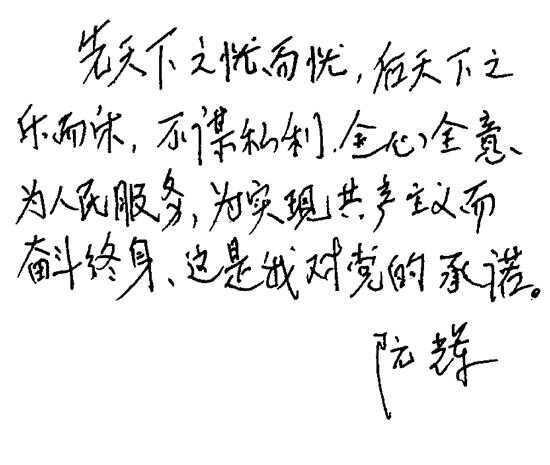 先天下之忧而忧，后天下之
乐而乐，不谋私利.全心全意、
为人民服务，为实现共产主义而
奋斗终身、这是我对党的承诺。
阮辉